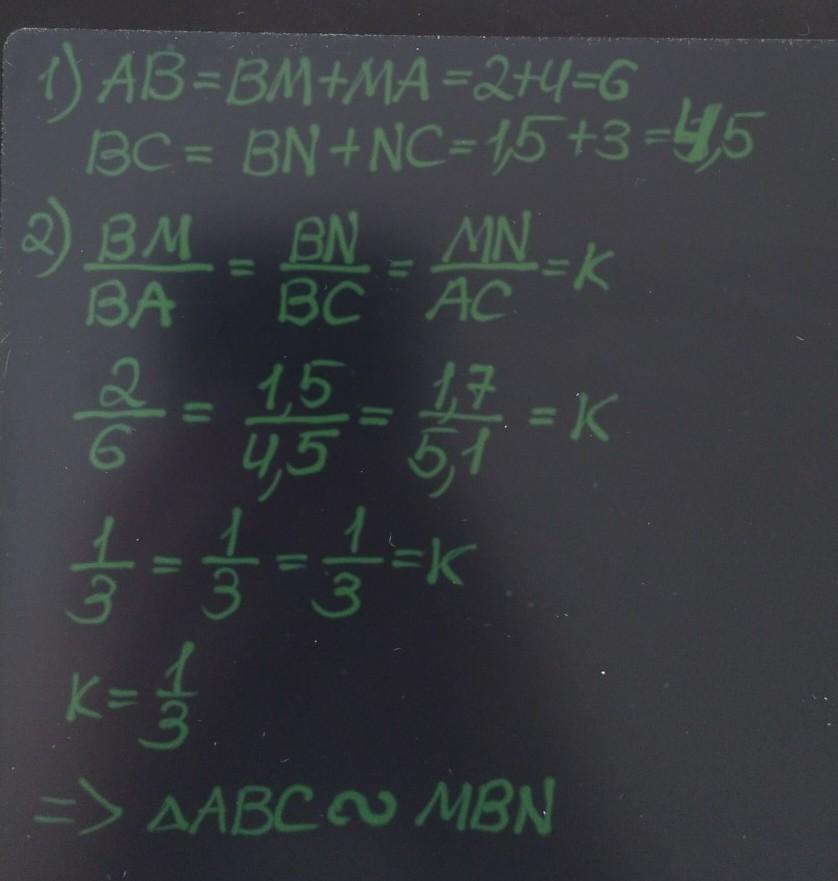 1) AB=BM+MA=2+4=6
BC= BN+NC=1,5+3=4,5
2) BM/BA = BN/BC = MN/AC = K
2/6 = 1,5/4,5 = 1,7/5,1 = K
1/3 = 1/3 = 1/3 = K
K= 1/3
=> △ABC ∾ MBN